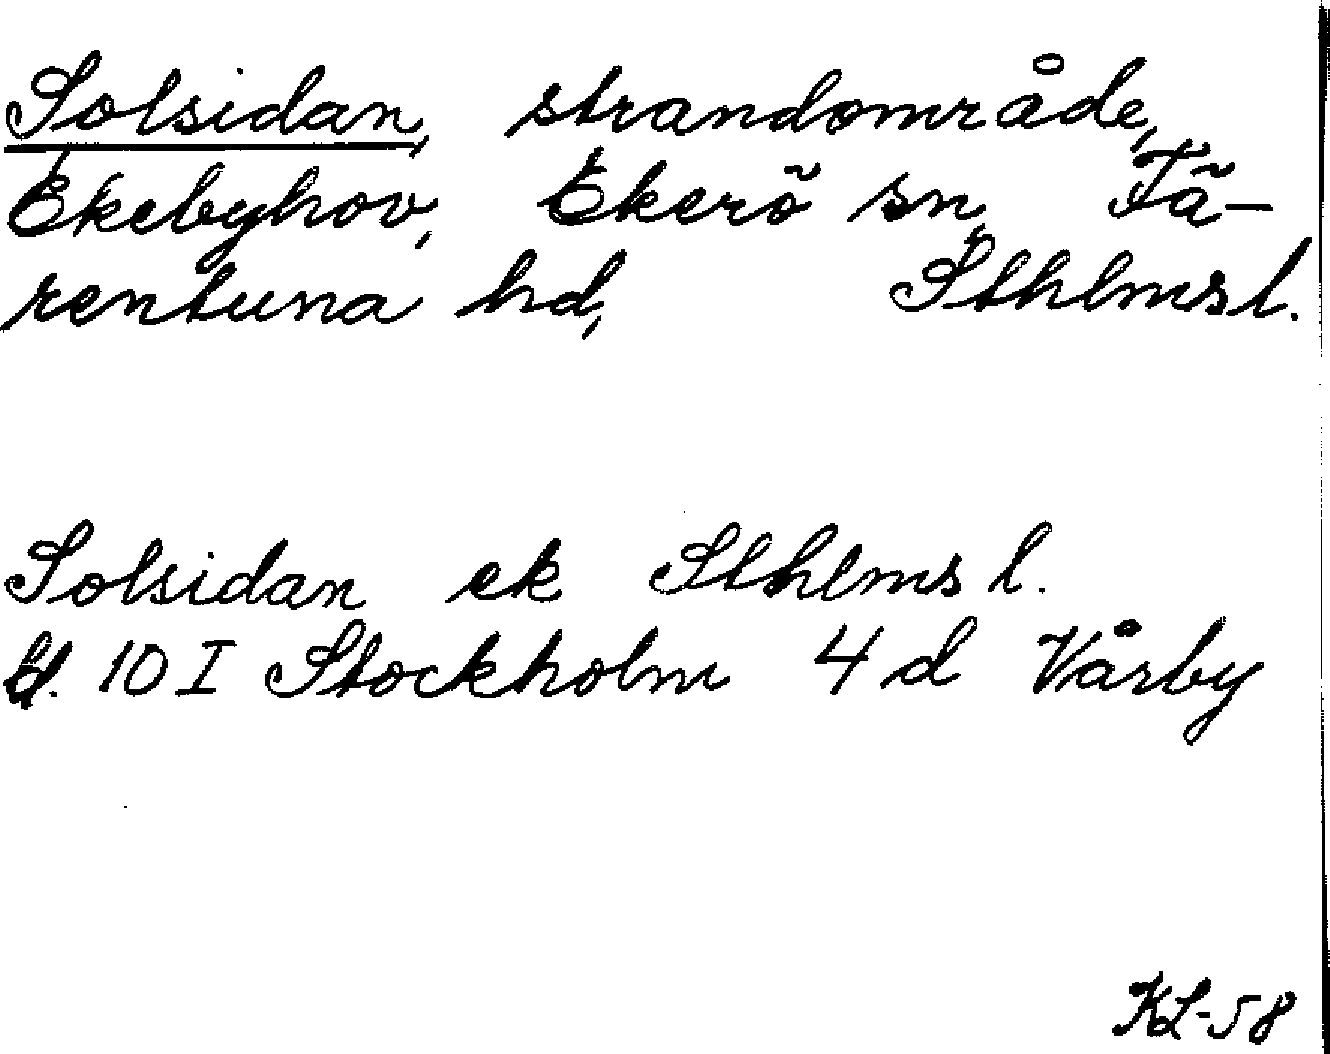 Solsidan, strandområde,
Ekebyhov, Ekerö sn, Fä-
rentuna hd, Sthlms l.
Solsidan ek Sthlms l.
bl. 10 I Stockholm 4 d Vårby
KL-58